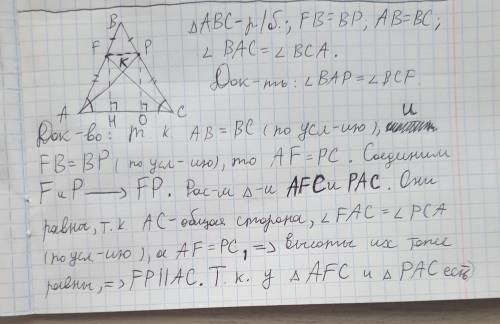 ΔABC-р/б.; FB=BP; AB=BC;
∠BAC=∠BCA.
Док-ть: ∠BAP=∠BCF.
B
F P
K
A H O C
Док-во: т к AB=BC (по усл-ию), и
FB=BP (по усл-ию), то AF=PC. Соединим
F и P → FP. Рас-м Δ-и AFC и PAC. Они
равны, т.к AC-общая сторона, ∠FAC=∠PCA
(по усл-ию), а AF=PC, => высоты их тоже
равны, => FP||AC. Т.к. у ΔAFC и ΔPAC есть